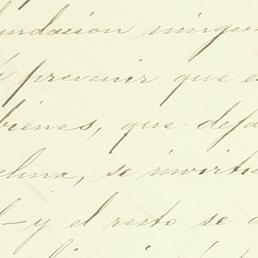 fundacion ningun
á prevenir que e
bienes, que defa
elina, se invirtie
l- y el resto se d